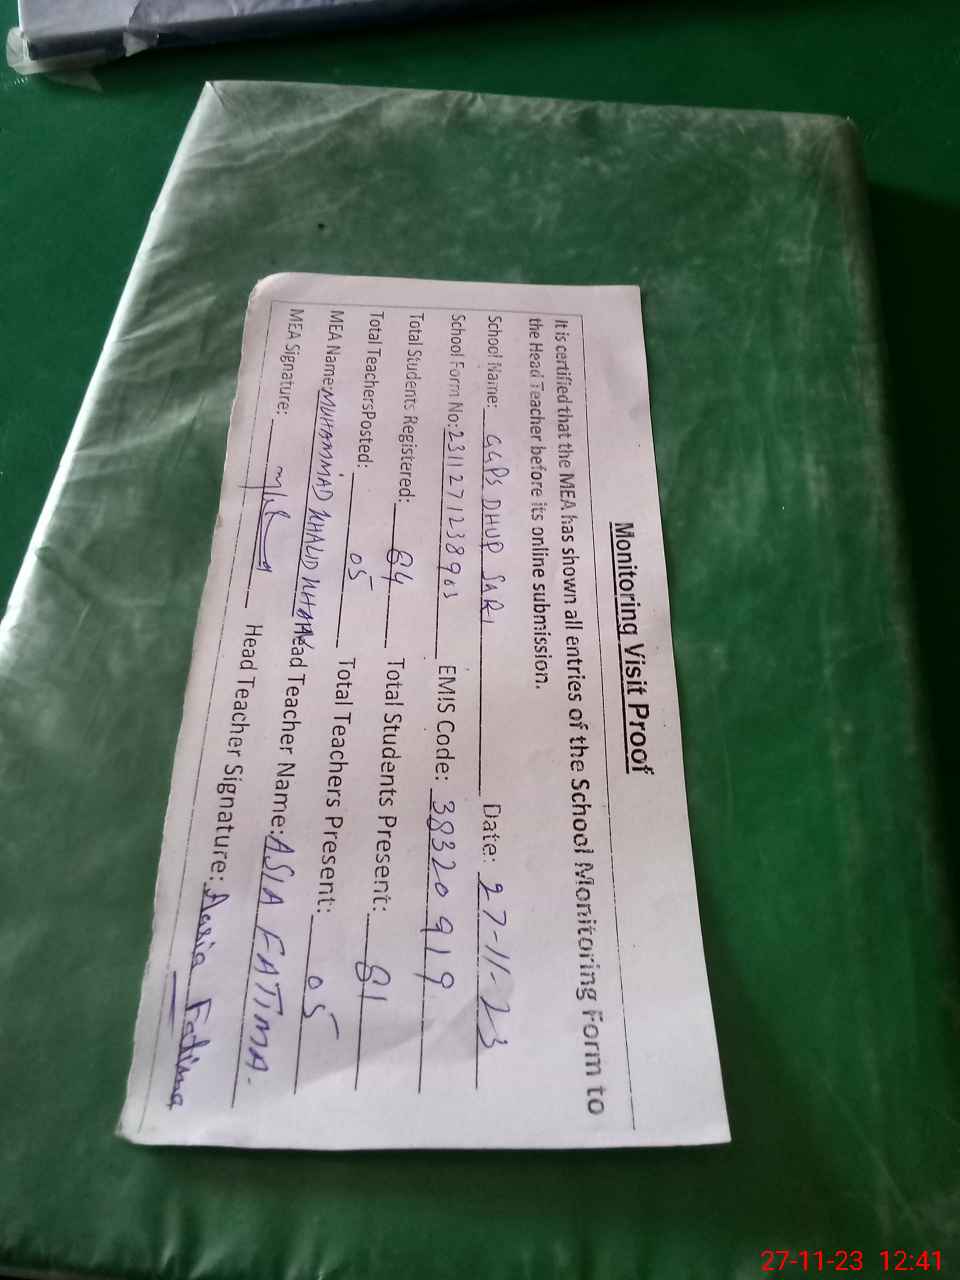 Monitoring Visit Proof
It is certified that the MEA has shown all entries of the School Monitoring Form to
the Head Teacher before its online submission.
School Name: GGPS DHUP SARI Date: 27-11-23
School Form No: 2311271238903 EMIS Code: 38320919
Total Students Registered: 84 Total Students Present: 81
Total TeachersPosted: 05 Total Teachers Present: 05
MEA Name: MUHAMMAD KHALID KHAN Head Teacher Name: ASIA FATIMA.
MEA Signature: Head Teacher Signature: Aasia Fatima
27-11-23 12:41